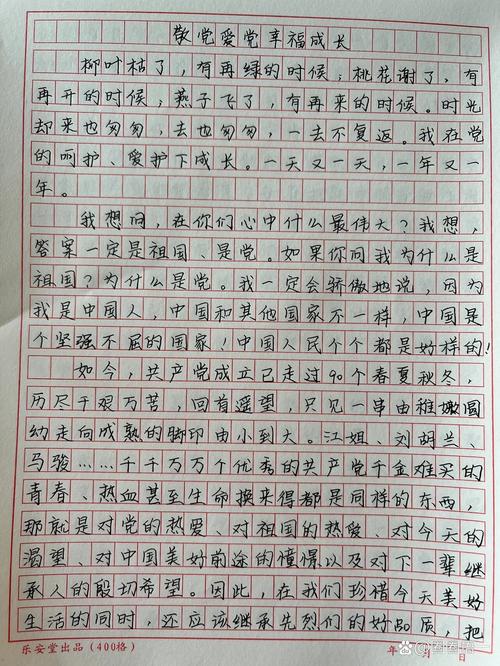 敬党爱党幸福成长
柳叶枯了，有再绿的时候；桃花谢了，有
再开的时候；燕子飞了，有再来的时候。时光
却来也匆匆，去也匆匆，一去不复返。我在党
的呵护、爱护下成长。一天又一天，一年又一
年。
我想问，在你们心中什么最伟大？我想，
答案一定是祖国、是党。如果你问我为什么是
祖国？为什么是党。我一定会骄傲地说，因为
我是中国人，中国和其他国家不一样，中国是
个坚强不屈的国家！中国人民个个都是好样的！
如今，共产党成立已走过90个春夏秋冬，
历尽千艰万苦，回首遥望，只见一串由稚嫩圆
幼走向成熟的脚印由小到大。江姐、刘胡兰、
马骏……千千万万个优秀的共产党千金难买的
青春、热血甚至生命换来得都是同样的东西，
那就是对党的热爱、对祖国的热爱、对今天的
渴望、对中国美好前途的憧憬以及对下一辈继
承人的殷切希望。因此，在我们珍惜今天美好
生活的同时，还应该继承先烈们的好品质，把
乐安堂出品（400格） 年 月 日